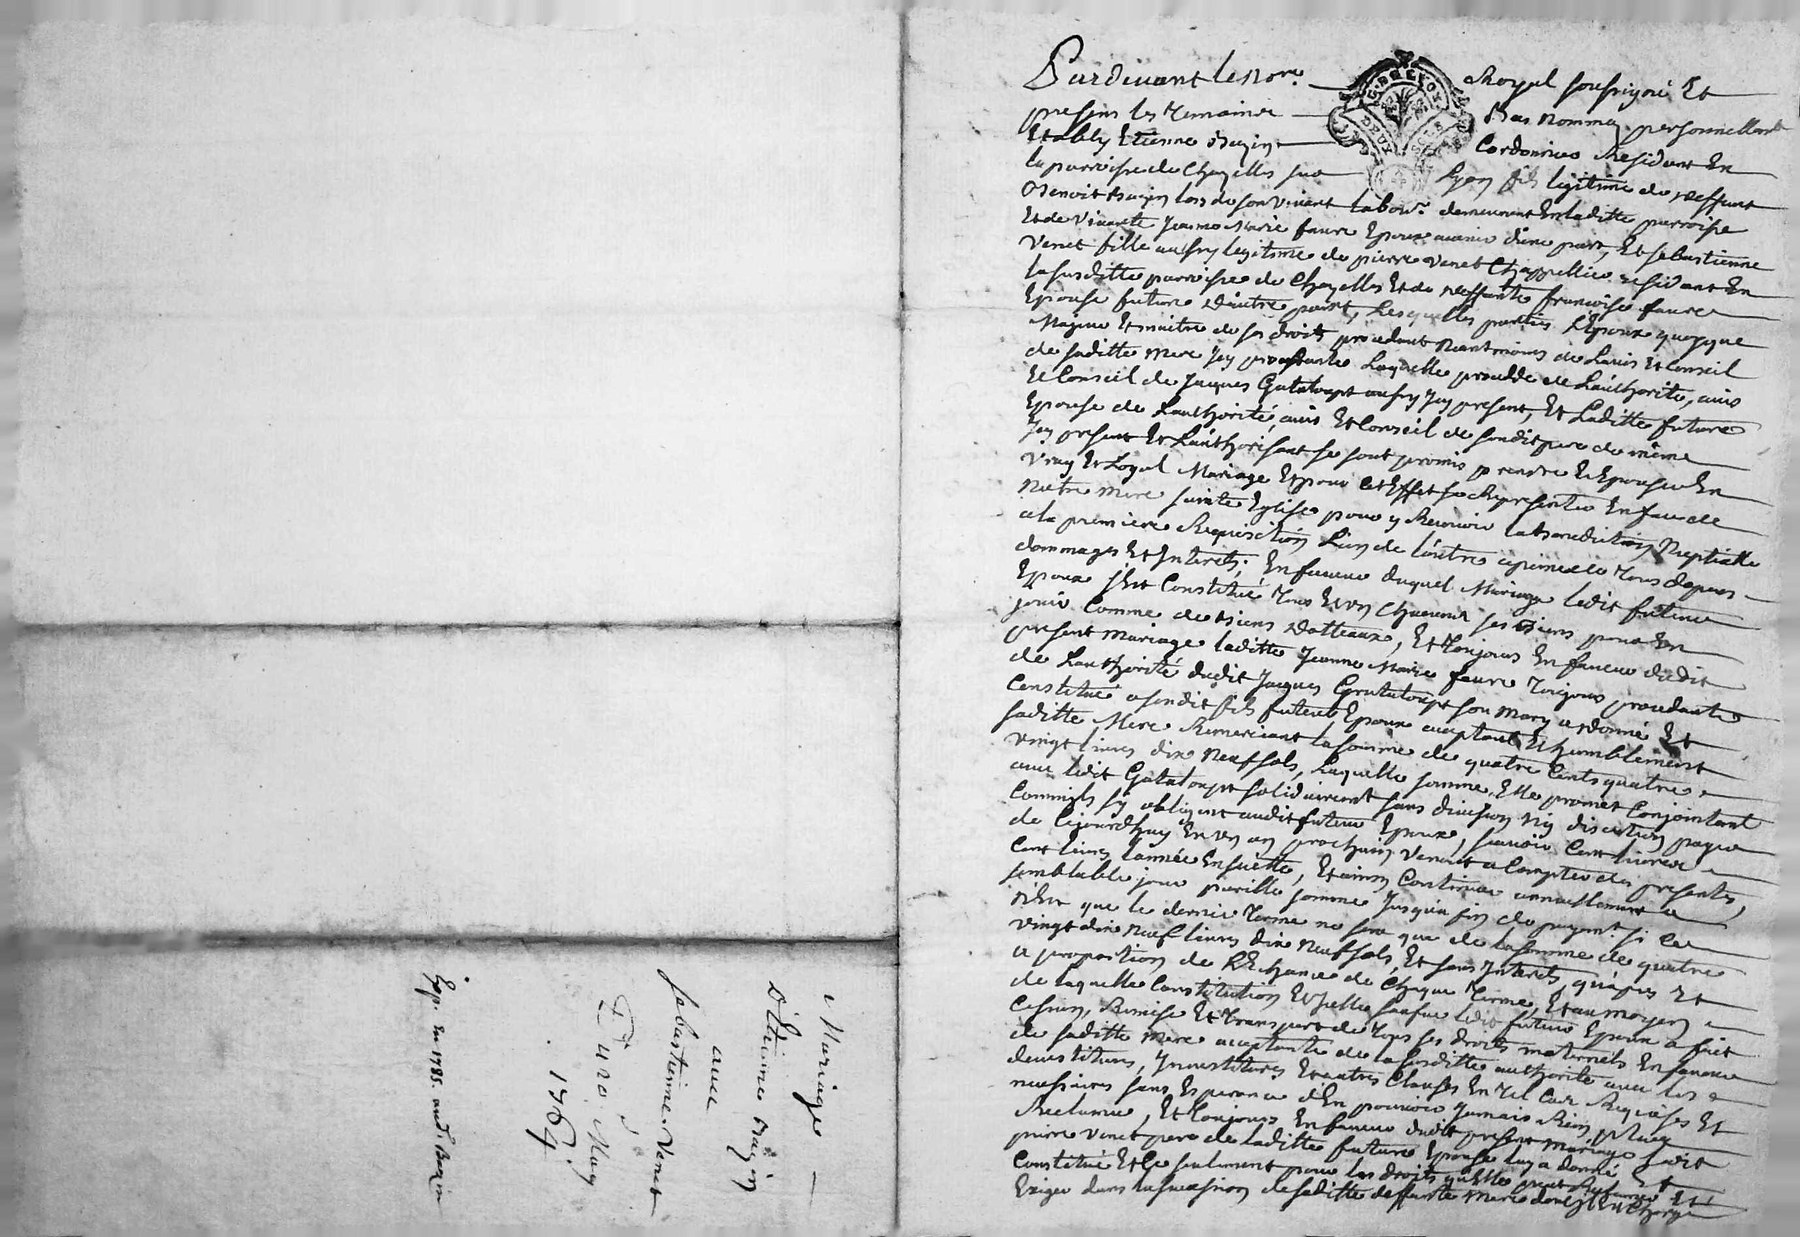 Mariage
d'Etienne Bazin
avec
Sebastienne Venet
Du 20 May
1764
Exp. en 1785. aud. Bazin
Pardevant le Nore. Royal soussigné Et
G. DE LYON
DEUX SOLS
presens les temoins Bas nommez personnellemt
Etably Etienne Bazin Cordonnier Residant En
la parroisse de Chazelles sur Lyon fils legitime de deffunt
Benoit Bazin lors de son vivant labour. demeurant En laditte parroisse
Et de vivante Jeanne Marie faure Epoux avenir d'une part, Et sebastienne
Venet fille aussy legitime de pierre Venet Chappellier residant En
la susditte parroisse de Chazelles Et de deffunte francoise faure
Epouse future d'autre part, Lesquelles parties L'Epoux quoyque
Majeur Et maitre de ses droits procedant Neantmoins de L'avis Et Conseil
de saditte mere Icy presente Laquelle procedde de L'authorité, avis
Et Conseil de Jacques Grataloupt aussy Icy present, Et Laditte future
Epouse de L'authorité, avis Et Conseil de sondit pere de même
Icy present Et L'authorisant se sont promis prendre Et Epouser En
Vray Et Loyal Mariage Et pour Cet Effet se Representer En face de
Notre mere sainte Eglise pour y Recevoir la benediction Nuptialle
a la premiere Requisition L'un de l'autre a peine de tous depens
dommages Et Interets; En faveur duquel Mariage ledit futur
Epoux s'Est Constitué tous Et un Chacuns ses biens pour En
jouir Comme de biens dotteaux, Et toujours En faveur dudit
present mariage laditte Jeanne Marie faure toujours procedante
de L'authorité dudit Jacques Grataloupt son mary a donné Et
Constitué a sondit fils futur Epoux acceptant Et humblement
saditte Mere Remerciant la somme de quatre Cents quatre
vingt livres dix neuf sols, Laquelle somme, Elle promet Conjointemt
avec ledit Grataloupt solidairement sans division Ny discution payer
Commils s'y obligent audit futur Epoux, scavoir Cent livres
de Cejourdhuy En un an prochain venant a Compter des presentes,
Cent livres l'année Ensuitte, Et ainsy Continuer annuellement a
semblable jour pareille somme Jusqu'a fin de payemt. si Ce
n'Est que le dernier terme ne sera que de la somme de quatre
vingt dix neuf livres dix neuf sols, Et sans Interets, qu'apres Et
a proportion de L'Echeance de Chaque terme, Et au moyen
de laquelle Constitution ledit futur Epoux a fait
Cession, Remise Et transport de tous ses droits maternels En faveur
de saditte Mere acceptante de la susditte authorité avec les
devestitures, Investitures Et autres Clauses En tel Cas Requises Et
necessaires sans Esperance d'En pouvoir Jamais Rien plus
Reclamer, Et toujours En faveur dudit present Mariage ledit
pierre Venet pere de laditte future Epouse luy a donné Et
Constitué Et Ce seulement pour les droits qu'Elle peut Et
Exiger dans la succession de saditte deffunte Mere